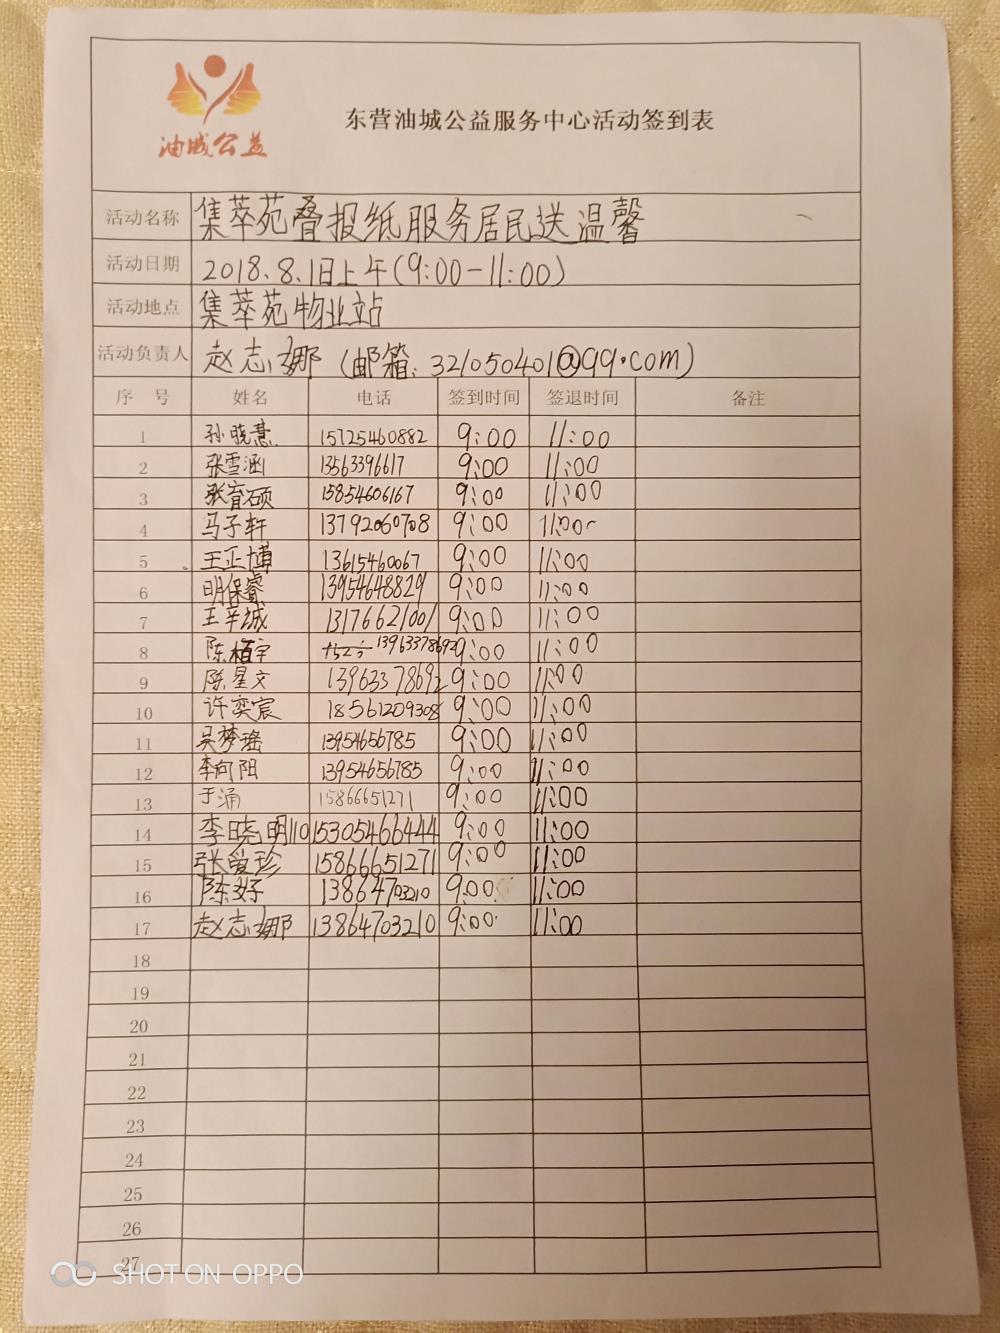 油城公益
东营油城公益服务中心活动签到表
活动名称 集萃苑叠报纸服务居民送温馨
活动日期 2018.8.1日上午(9:00-11:00)
活动地点 集萃苑物业站
活动负责人 赵志娜(邮箱:321050401@qq.com)
序号 姓名 电话 签到时间 签退时间 备注
1 孙晓慧 15725460882 9:00 11:00
2 张雪涵 13563396617 9:00 11:00
3 张育硕 15854606167 9:00 11:00
4 马子轩 13792060708 9:00 11:00
5 王正博 13615460067 9:00 11:00
6 明保睿 13954648829 9:00 11:00
7 王辛城 13176621001 9:00 11:00
8 陈植宇 13963378692 9:00 11:00
9 陈星文 13963378692 9:00 11:00
10 许奕宸 18561209308 9:00 11:00
11 吴梦瑶 13954656785 9:00 11:00
12 李向阳 13954656785 9:00 11:00
13 于涌 15866651271 9:00 11:00
14 李晓明110 15305466444 9:00 11:00
15 张爱珍 15866651271 9:00 11:00
16 陈好 13864703210 9:00 11:00
17 赵志娜 13864703210 9:00 11:00
18
19
20
21
22
23
24
25
26
27
SHOT ON OPPO